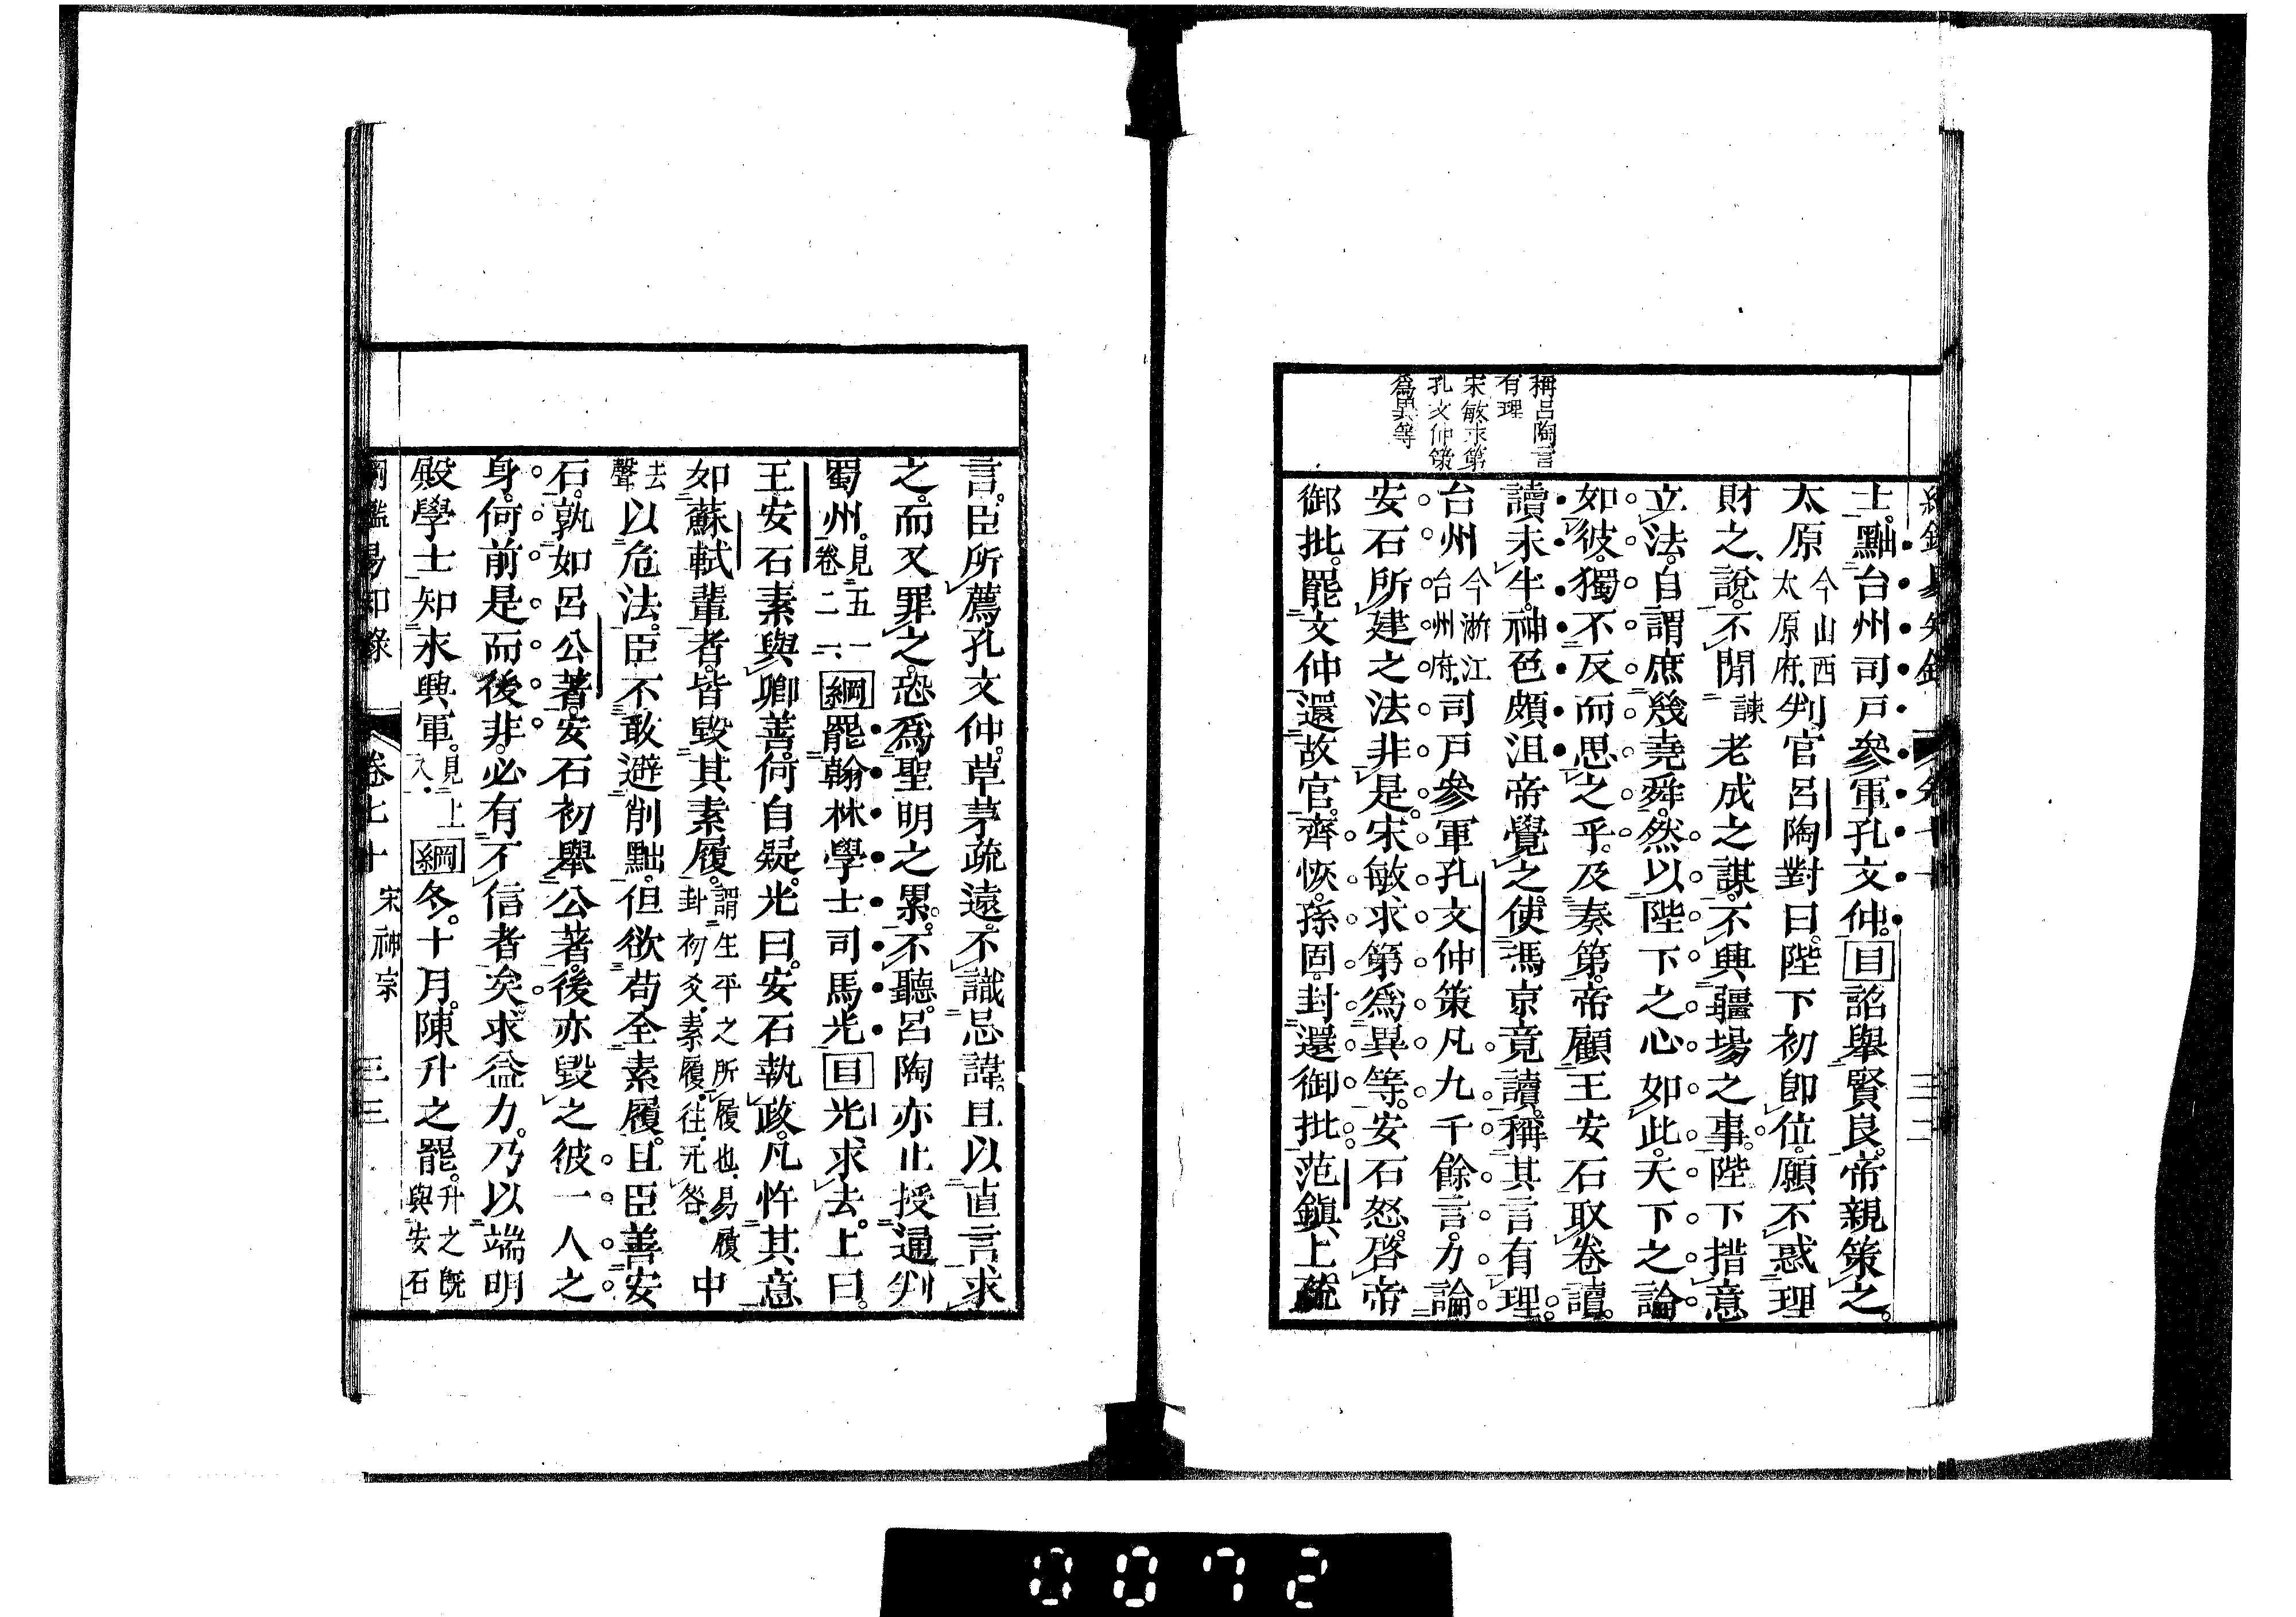 稱呂陶言
有理
宋敏求第
孔文仲策
爲異等
士。黜台州司戶參軍孔文仲。目詔舉賢良。帝親策之。
太原今山西太原府。判官呂陶對曰。陛下初卽位。願不惑理
財之說。不閒諫老成之謀。不興疆場之事。陛下措意
立法。自謂庶幾堯舜。然以陛下之心如此。天下之論
如彼。獨不反而思之乎。及奏第。帝顧王安石取卷讀。
讀未半。神色頗沮。帝覺之。使馮京竟讀。稱其言有理。
台州今浙江台州府。司戶參軍孔文仲策凡九千餘言。力論
安石所建之法非是。宋敏求第爲異等。安石怒。啓帝
御批。罷文仲還故官。齊恢。孫固。封還御批。范鎭上疏
言。臣所薦孔文仲。草茅疏遠。不識忌諱。且以直言求
之。而又罪之。恐爲聖明之累。不聽。呂陶亦止授通判
蜀州。見五一卷二一、綱罷翰林學士司馬光目光求去。上曰。
王安石素與卿善。何自疑。光曰。安石執政。凡忤其意
如蘇軾輩者。皆毀其素履。謂生平之所履也。易履卦初爻。素履。往。无咎。中
去聲以危法。臣不敢避削黜。但欲苟全素履。且臣善安
石。孰如呂公著。安石初舉公著。後亦毀之。彼一人之
身。何前是而後非。必有不信者矣。求益力。乃以端明
殿學士知永興軍。見上八。綱冬。十月。陳升之罷。升之旣與安石
綱鑑易知錄　卷七十　宋神宗　三三